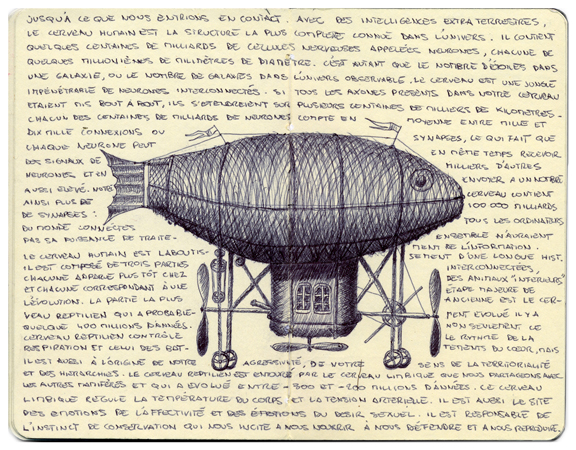 JUSQU'À CE QUE NOUS ENTRIONS EN CONTACT AVEC DES INTELLIGENCES EXTRATERRESTRES,
LE CERVEAU HUMAIN EST LA STRUCTURE LA PLUS COMPLEXE CONNUE DANS L'UNIVERS. IL CONTIENT
QUELQUES CENTAINES DE MILLIARDS DE CELLULES NERVEUSES APPELÉES NEURONES, CHACUNE DE
QUELQUES MILLIONIÈMES DE MILIMÈTRES DE DIAMÈTRE. C'EST AUTANT QUE LE NOMBRE D'ÉTOILES DANS
UNE GALAXIE, OU LE NOMBRE DE GALAXIES DANS L'UNIVERS OBSERVABLE. LE CERVEAU EST UNE JUNGLE
IMPÉNÉTRABLE DE NEURONES INTERCONNECTÉS. SI TOUS LES AXONES PRÉSENTS DANS NOTRE CERVEAU
ÉTAIENT MIS BOUT À BOUT, ILS S'ÉTENDRAIENT SUR PLUSIEURS CENTAINES DE MILLIERS DE KILOMÈTRES.
CHACUN DES CENTAINES DE MILLIARDS DE NEURONES COMPTE EN MOYENNE ENTRE MILLE ET
DIX MILLE CONNEXIONS OU SYNAPSES, CE QUI FAIT QUE
CHAQUE NEURONE PEUT EN MÊME TEMPS RECEVOIR
DES SIGNAUX DE MILLIERS D'AUTRES
NEURONES ET EN ENVOYER A UN NOMBRE
AUSSI ÉLEVÉ. NOTRE CERVEAU CONTIENT
AINSI PLUS DE 100 000 MILLIARDS
DE SYNAPSES : TOUS LES ORDINATEURS
DU MONDE CONNECTÉS ENSEMBLE N'AURAIENT
PAS SA PUISSANCE DE TRAITE- MENT DE L'INFORMATION.
LE CERVEAU HUMAIN EST L'ABOUTIS- SEMENT D'UNE LONGUE HIST.
IL EST COMPOSÉ DE TROIS PARTIES INTERCONNECTÉES,
CHACUNE APPARUE PLUS TÔT CHEZ DES ANIMAUX "INFÉRIEURS"
ET CHACUNE CORRESPONDANT À UNE ÉTAPE MAJEURE DE
L'ÉVOLUTION. LA PARTIE LA PLUS ANCIENNE EST LE CER-
VEAU REPTILIEN QUI A PROBABLE- MENT ÉVOLUÉ IL Y A
QUELQUE 400 MILLIONS D'ANNÉES. NON SEULEMENT CE
CERVEAU REPTILIEN CONTRÔLE LE RYTHME DE LA
RESPIRATION ET CELUI DES BAT- TEMENTS DU CŒUR, MAIS
IL EST AUSSI À L'ORIGINE DE NOTRE AGRESSIVITÉ, DE NOTRE SENS DE LA TERRITORIALITÉ
ET DES HIÉRARCHIES. LE CERVEAU REPTILIEN EST ENTOURÉ PAR LE CERVEAU LIMBIQUE QUE NOUS PARTAGEONS AVEC
LES AUTRES MAMIFÈRES ET QUI A ÉVOLUÉ ENTRE -300 ET -200 MILLIONS D'ANNÉES. CE CERVEAU
LIMBIQUE RÉGULE LA TEMPÉRATURE DU CORPS ET LA TENSION ARTÉRIELLE. IL EST AUSSI LE SITE
DES ÉMOTIONS DE L'AFFECTIVITÉ ET DES ÉMOTIONS DU DÉSIR SEXUEL. IL EST RESPONSABLE DE
L'INSTINCT DE CONSERVATION QUI NOUS INCITE À NOUS NOURRIR À NOUS DÉFENDRE ET À NOUS REPRODUIRE.